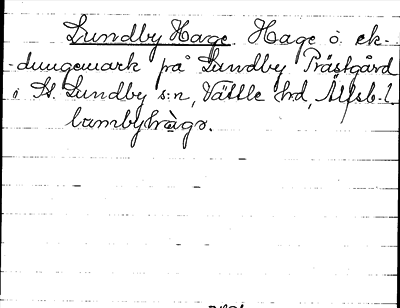 Lundby Hage. Hage o. ek-
-dungemark på Lundby Prästgård
i St. Lundby s:n, Vättle hd, Älfsb. l.